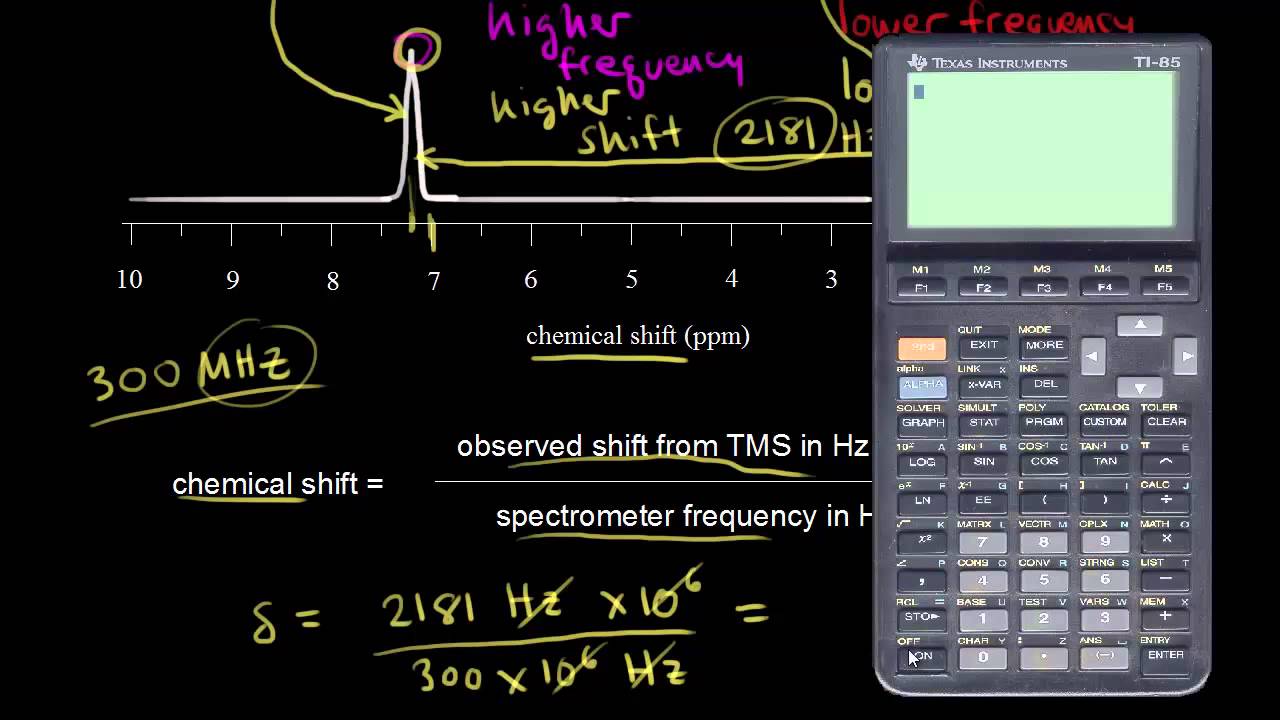 higher
frequency
lower frequency
higher
shift 2181 Hz
lo
10 9 8 7 6 5 4 3
chemical shift (ppm)
300 MHz
observed shift from TMS in Hz
chemical shift =
spectrometer frequency in H
δ = 2181 Hz × 10⁶ =
300 × 10⁶ Hz
TEXAS INSTRUMENTS TI-85
M1 M2 M3 M4 M5
F1 F2 F3 F4 F5
QUIT MODE
2nd EXIT MORE
alpha LINK X INS
ALPHA x-VAR DEL
SOLVER SIMULT POLY CATALOG TOLER
GRAPH STAT PRGM CUSTOM CLEAR
10ˣ A SIN⁻¹ B COS⁻¹ C TAN⁻¹ D π E
LOG SIN COS TAN ^
eˣ F x⁻¹ G [ H ] I CALC J
LN EE ( ) ÷
√ K MATRX L VECTR M CPLX N MATH O
x² 7 8 9 ×
∠ P CONS Q CONV R STRNG S LIST T
, 4 5 6 −
RCL = BASE U TEST V VARS W MEM X
STO▶ 1 2 3 +
OFF CHAR Y : Z ANS ␣ ENTRY
ON 0 . (−) ENTER